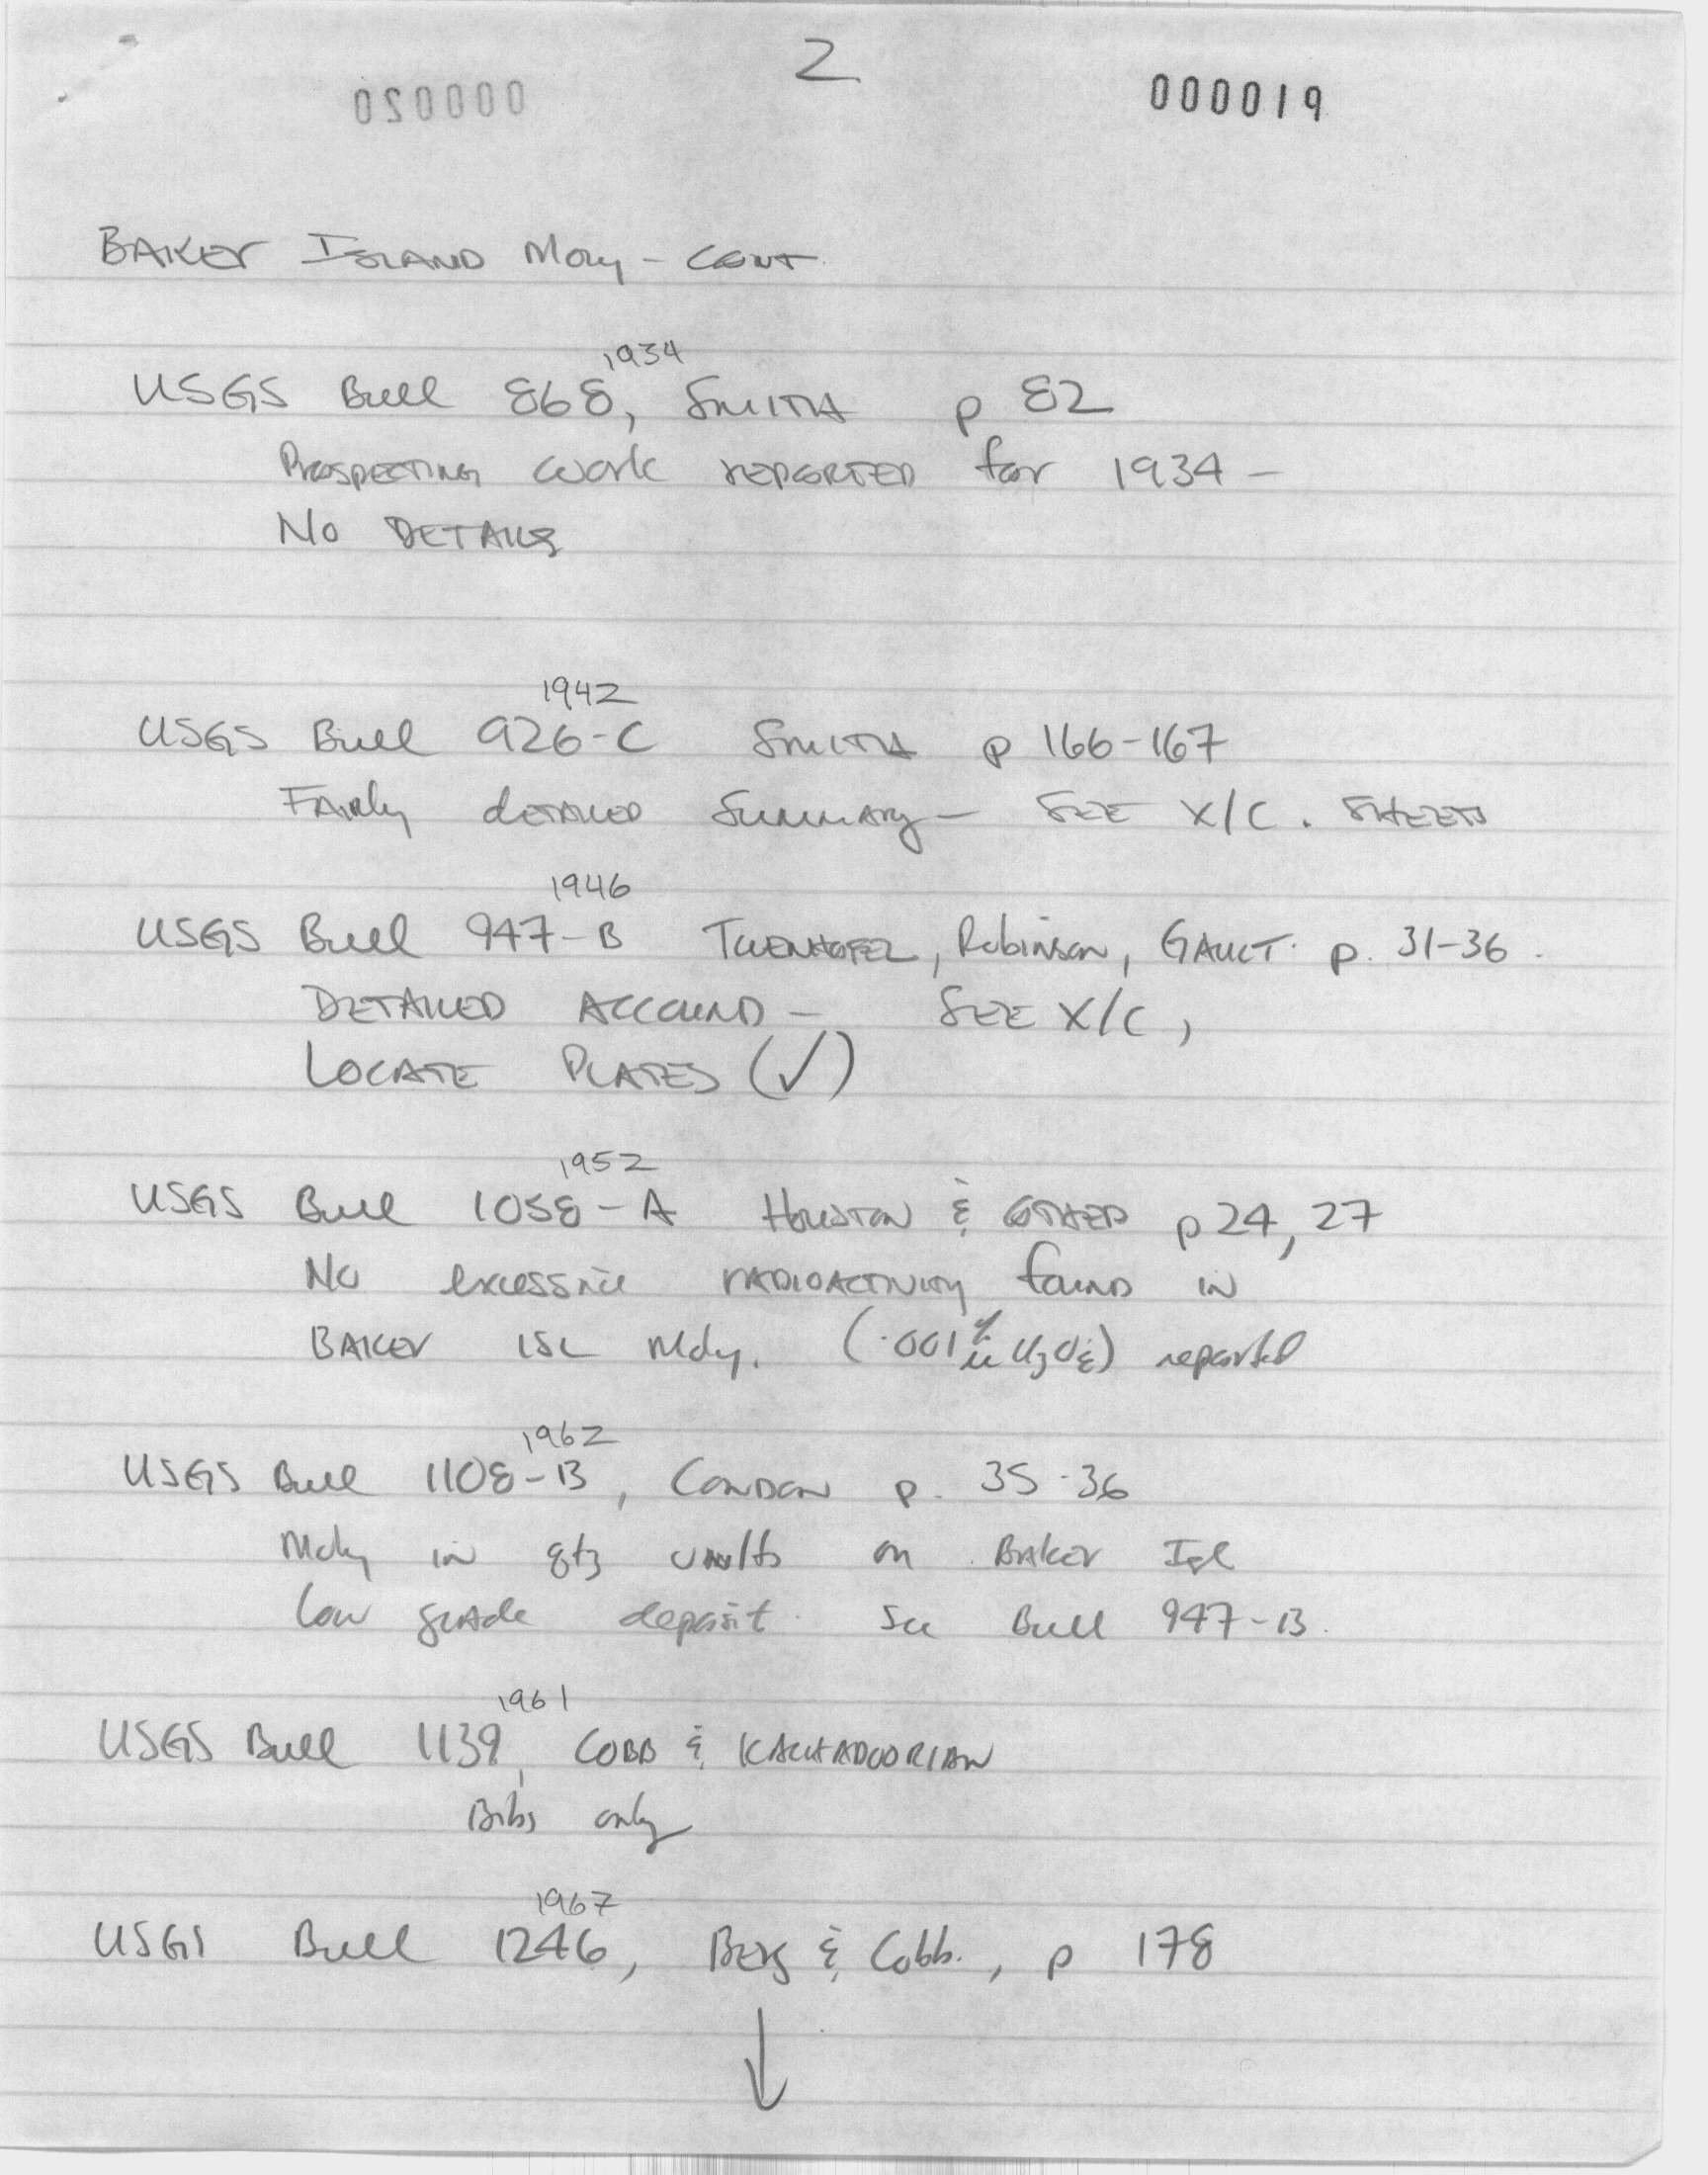 2
000019
BAKER ISLAND Moly - CONT.
1934
USGS Bull 868, SMITH p 82
PROSPECTING work REPORTED for 1934 -
No DETAILS
1942
USGS Bull 926-C SMITH p 166-167
FAIRly detailed Summary - SEE X/C. SHEETS
1946
USGS Bull 947-B TWENHOFEL, Robinson, GAULT p. 31-36.
DETAILED ACCOUND - SEE X/C,
LOCATE PLATES (✓)
1952
USGS Bull 1058-A HOUSTON & OTHERS p 24, 27
No excessive RADIOACTIVITY found in
BAKER ISL Moly. (.001% U3O8) reported
1962
USGS Bull 1108-B, CONDON p. 35-36
Moly in qtz on Baker Isl
low grade deposit. See Bull 947-B.
1961
USGS Bull 1139, COBB & KACHADOORIAN
Bibs only
1967
USGS Bull 1246, Berg & Cobb., p 178
↓